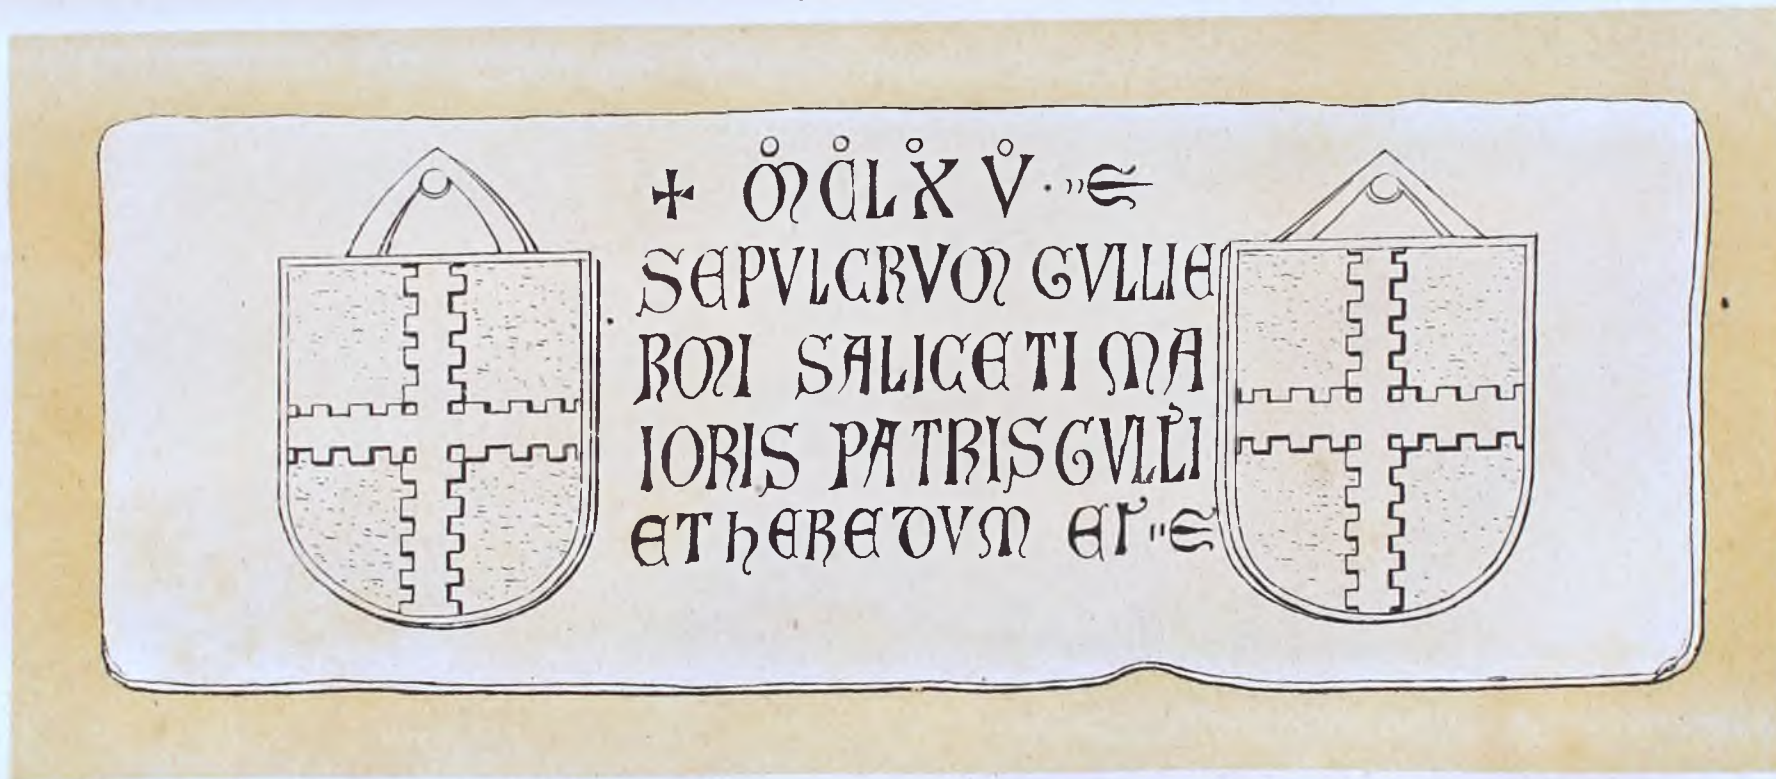 + MCLXV
SEPVLCRVM GVLLIE
RMI SALICETI MA
IORIS PATRIS GVLLI
ET HEREDVM EI'